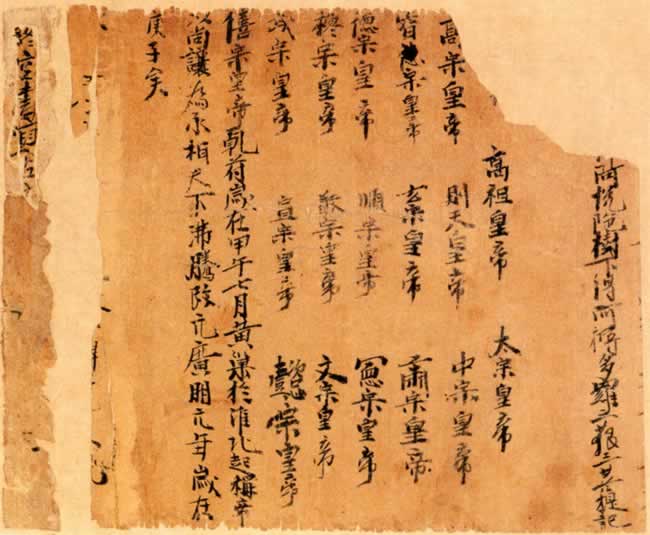 樹下得阿耨多羅三三菩提記
高祖皇帝 太宗皇帝
高宗皇帝 則天皇帝 中宗皇帝
宗皇帝 玄宗皇帝 肅宗皇帝
德宗皇帝 順宗皇帝 憲宗皇帝
穆宗皇帝 敬宗皇帝 文宗皇帝
武宗皇帝 宣宗皇帝 懿宗皇帝
僖宗皇帝乾符歲在甲午七月黃巢於淮北起稱帝
以尚讓為承相天下沸騰改元廣明元年歲在
庚子矣